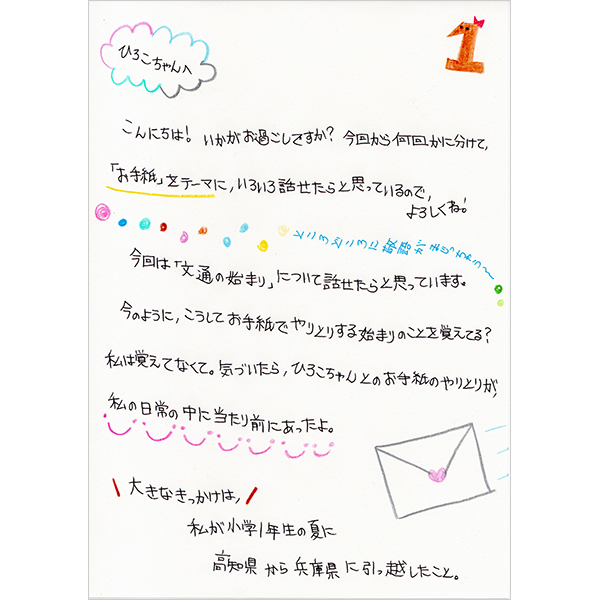 1
ひろこちゃんへ
こんにちは！いかがお過ごしですか？今回から何回かに分けて、
「お手紙」をテーマに、いろいろ話せたらと思っているので、
よろしくね！
ところどころに敬語がまじっちゃう〜
今回は「文通の始まり」について話せたらと思っています。
今のように、こうしてお手紙でやりとりする始まりのことを覚えてる？
私は覚えてなくて。気づいたら、ひろこちゃんとのお手紙のやりとりが、
私の日常の中に当たり前にあったよ。
\ 大きなきっかけは、/
私が小学1年生の夏に
高知県から兵庫県に引っ越したこと。